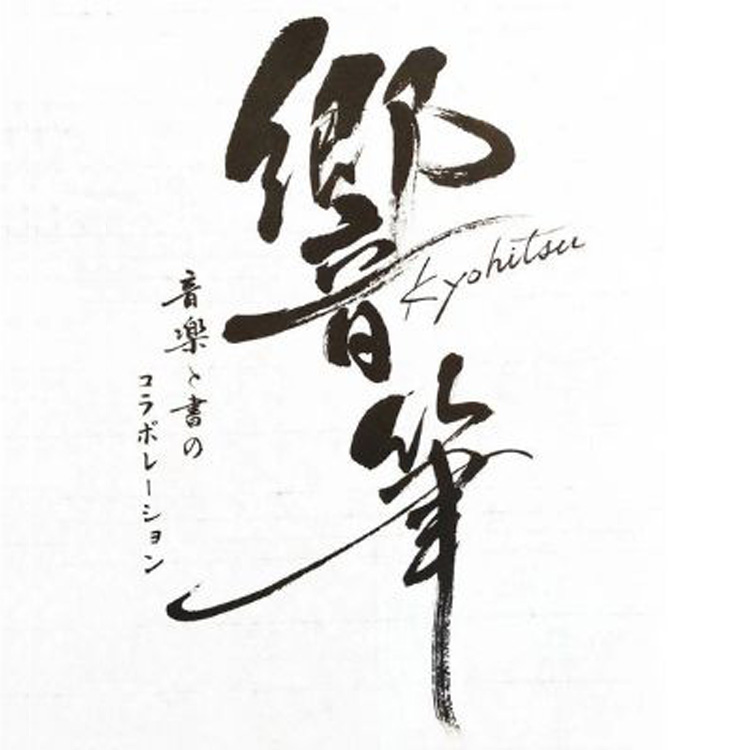 響筆
Kyohitsu
音楽と書の
コラボレーション